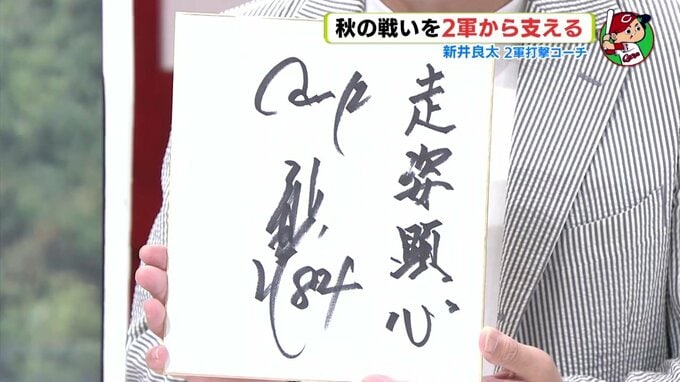 秋の戦いを2軍から支える
新井良太 2軍打撃コーチ
走姿顕心
84